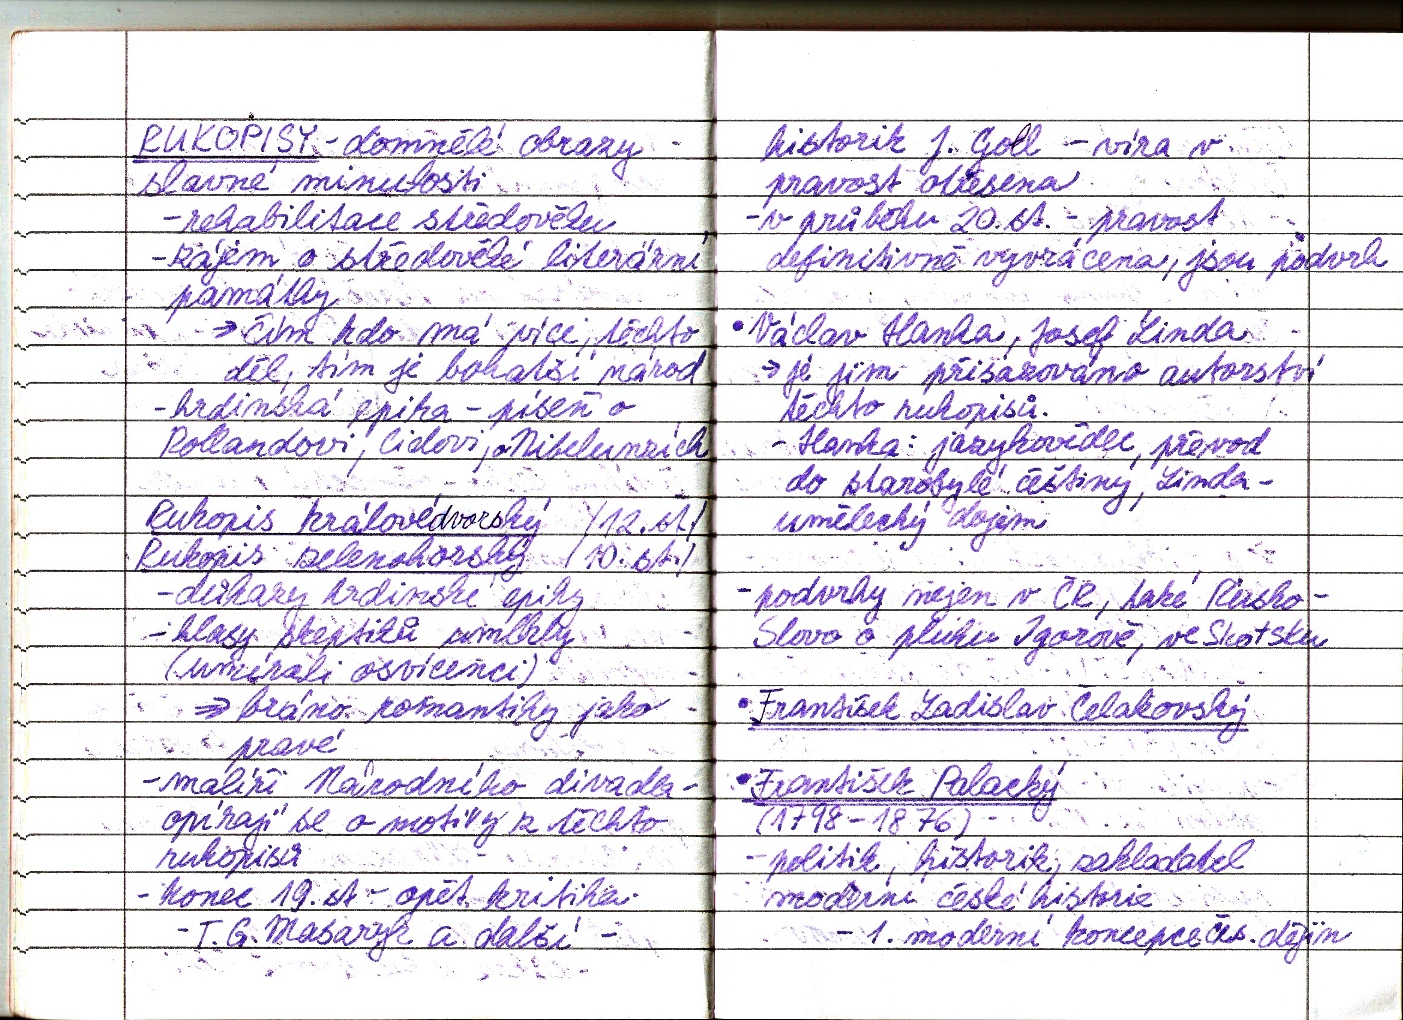 RUKOPISY - domnělé obrazy
slavné minulosti
- rehabilitace středověku
- zájem o středověké literární
památky
→ čím kdo má více těchto
děl, tím je bohatší národ
- hrdinská epika - píseň o
Rollandovi, Cidovi, o Nibelunzích
Rukopis Královédvorský /12. st./
Rukopis zelenohorský /10. st./
- důkazy hrdinské epiky
- hlasy skeptiků umlkly
(umírali osvícenci)
⇒ bráno romantiky jako
pravé
- malíři Národního divadla -
opírají se o motivy z těchto
rukopisů
- konec 19. st - opět kritika
- T. G. Masaryk a další -
historik J. Goll - víra v
pravost otřesena
- v průběhu 20. st. - pravost
definitivně vyvrácena, jsou podvrh
• Václav Hanka, Josef Linda
→ je jim přisuzováno autorství
těchto rukopisů.
- Hanka: jazykovědec, převod
do starobylé češtiny, Linda -
umělecký dojem
- podvrhy nejen v ČR, také Rusko -
Slovo o pluku Igorově, ve Skotsku
• František Ladislav Čelakovský
• František Palacký
(1798 - 1876)
- politik, historik, zakladatel
moderní české historie
- 1. moderní koncepce čes. dějin